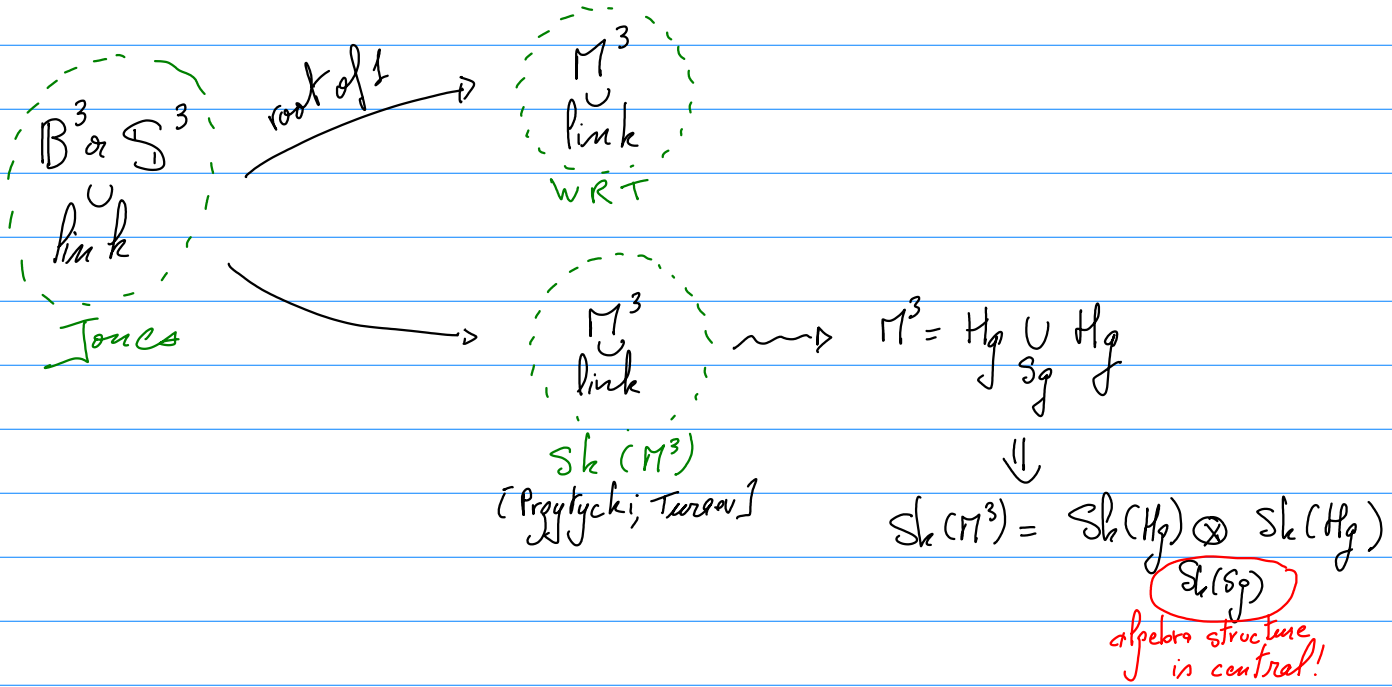 B³ or S³
∪
link
Jones
root of 1
M³
∪
link
WRT
M³
∪
link
Sk(M³)
[Przytycki, Turaev]
M³ = Hg ∪ Hg
Sg
⇓
Sk(M³) = Sk(Hg) ⊗ Sk(Hg)
Sk(Sg)
algebra structure
is central!